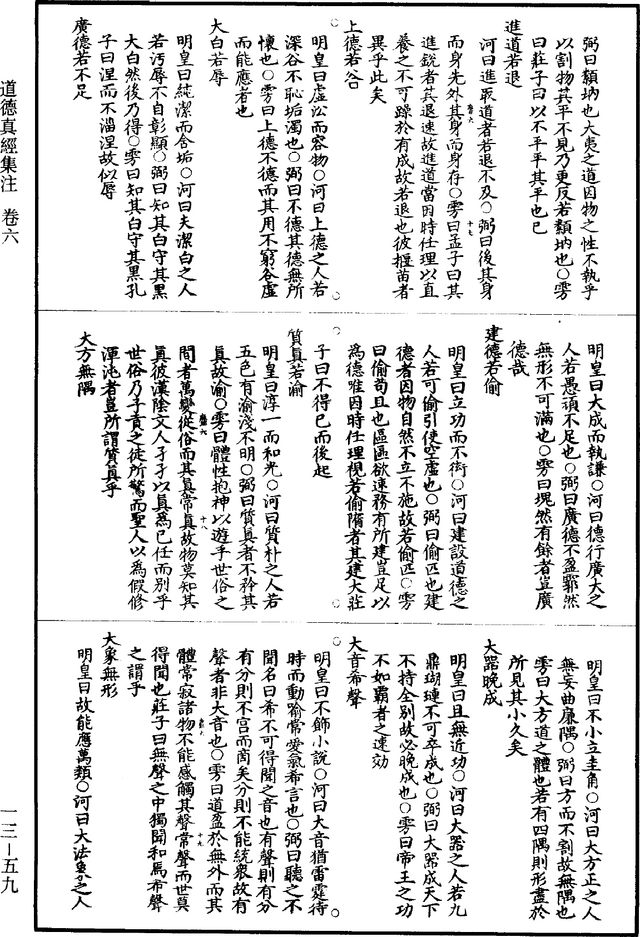 弼曰纇㘨也大夷之道因物之性不執乎
以割物其平不見乃更反若纇㘨也○雱
曰莊子曰以不平平其平也已
進道若退
河曰進取道者若退不及○弼曰後其身
而身先外其身而身存○雱曰孟子曰其
進銳者其退速故進道當因時任理以直
養之不可躁於有成故若退也彼揠苗者
異乎此矣
上德若谷
明皇曰虛㳂而容物○河曰上德之人若
深谷不恥垢濁也○弼曰不德其德無所
懷也○雱曰上德不德而其用不窮谷虛
而能應者也
大白若辱
明皇曰純潔而含垢○河曰夫潔白之人
若汚辱不自彰顯○弼曰知其白守其黑
大白然後乃得○雱曰知其白守其黑孔
子曰涅而不淄涅故似辱
廣德若不足
明皇曰大成而執謙○河曰德行廣大之
人若愚頑不足也○弼曰廣德不盈寥然
無形不可滿也○雱曰塊然有餘者豈廣
德哉
建德若偷
明皇曰立功而不衒○河曰建設道德之
人若可偷引使空虛也○弼曰偷匹也建
德者因物自然不立不施故若偷匹○雱
曰偷苟且也區區欲速務有所建豈足以
為德唯因時任理視若偷隋者其建大莊
子曰不得已而後起
質真若渝
明皇曰淳一而和光○河曰質朴之人若
五色有渝淺不明○弼曰質真者不矜其
真故渝○雱曰體性抱神以遊乎世俗之
間者萬變從俗而其真常真故物莫知其
真彼漢陰丈人孑孑以真為已任而別乎
世俗乃子貢之徒所驚而聖人以為假修
渾沌者豈所謂質真乎
大方無隅
明皇曰不小立圭角○河曰大方正之人
無妄曲廉隅○弼曰方而不割故無隅也
雱曰大方道之體也若有四隅則形盡於
所見其小久矣
大器晚成
明皇曰且無近功○河曰大器之人若九
鼎瑚璉不可卒成也○弼曰大器成天下
不持全別故必晚成也○雱曰帝王之功
不如霸者之速効
大音希聲
明皇曰不飾小說○河曰大音猶雷霆待
時而動喻常愛氣希言也○弼曰聽之不
聞名曰希不可得聞之音也有聲則有分
有分則不宮而商矣分則不能統衆故有
聲者非大音也○雱曰道盈於無外而其
體常寂諸物不能感觸其聲常聲而世莫
得聞也莊子曰無聲之中獨聞和焉希聲
之謂乎
大象無形
明皇曰故能應萬類○河曰大法象之人
道德真經集注　卷六
一三－五九